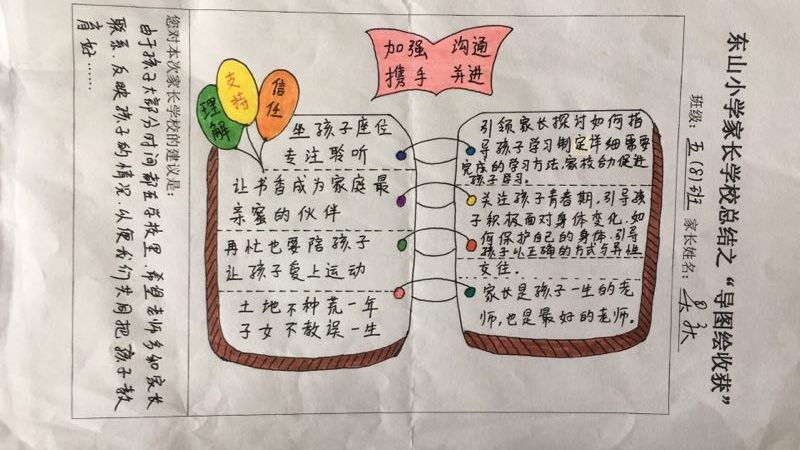 东山小学家长学校总结之“导图绘收获”
班级：五(8)班 家长姓名：
加强 沟通
携手 并进
理解
支持
信任
坐孩子座位
专注聆听
让书香成为家庭最
亲蜜的伙伴
再忙也要陪孩子
让孩子爱上运动
土地不种荒一年
子女不教误一生
引领家长探讨如何指
导孩子学习制定详细需要
完成的学习方法.家校协力促进
孩子学习。
关注孩子青春期,引导孩
子积极面对身体变化.如
何保护自己的身体.引导
孩子以正确的方式与异性
交往.
家长是孩子一生的老
师,也是最好的老师。
您对本次家长学校的建议是：
由于孩子大部分时间都在学校里.希望老师多和家长
联系.反映孩子的情况.以便我们共同把孩子教
育好……